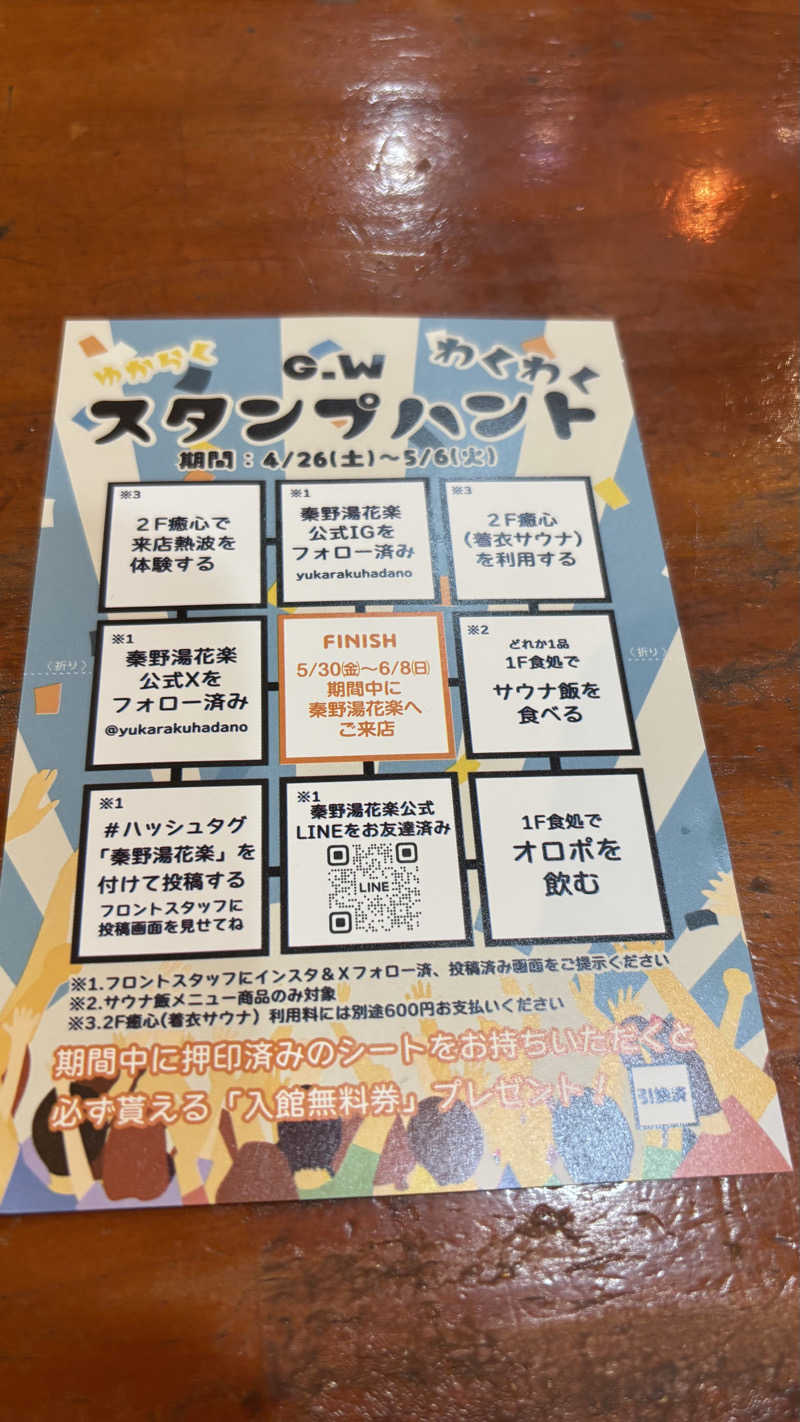 ゆからく G.W わくわく
スタンプハント
期間：4/26(土)～5/6(火)
※3
２F癒心で
来店熱波を
体験する
※1
秦野湯花楽
公式IGを
フォロー済み
yukarakuhadano
※3
２F癒心
(着衣サウナ)
を利用する
〈折り〉
※1
秦野湯花楽
公式Xを
フォロー済み
@yukarakuhadano
FINISH
5/30㈮～6/8㈰
期間中に
秦野湯花楽へ
ご来店
※2
どれか1品
1F食処で
サウナ飯を
食べる
〈折り〉
※1
#ハッシュタグ
「秦野湯花楽」を
付けて投稿する
フロントスタッフに
投稿画面を見せてね
※1
秦野湯花楽公式
LINEをお友達済み
LINE
1F食処で
オロポを
飲む
※1.フロントスタッフにインスタ＆Xフォロー済、投稿済み画面をご提示ください
※2.サウナ飯メニュー商品のみ対象
※3.2F癒心(着衣サウナ) 利用料には別途600円お支払いください
期間中に押印済みのシートをお持ちいただくと
必ず貰える「入館無料券」プレゼント！
引換済